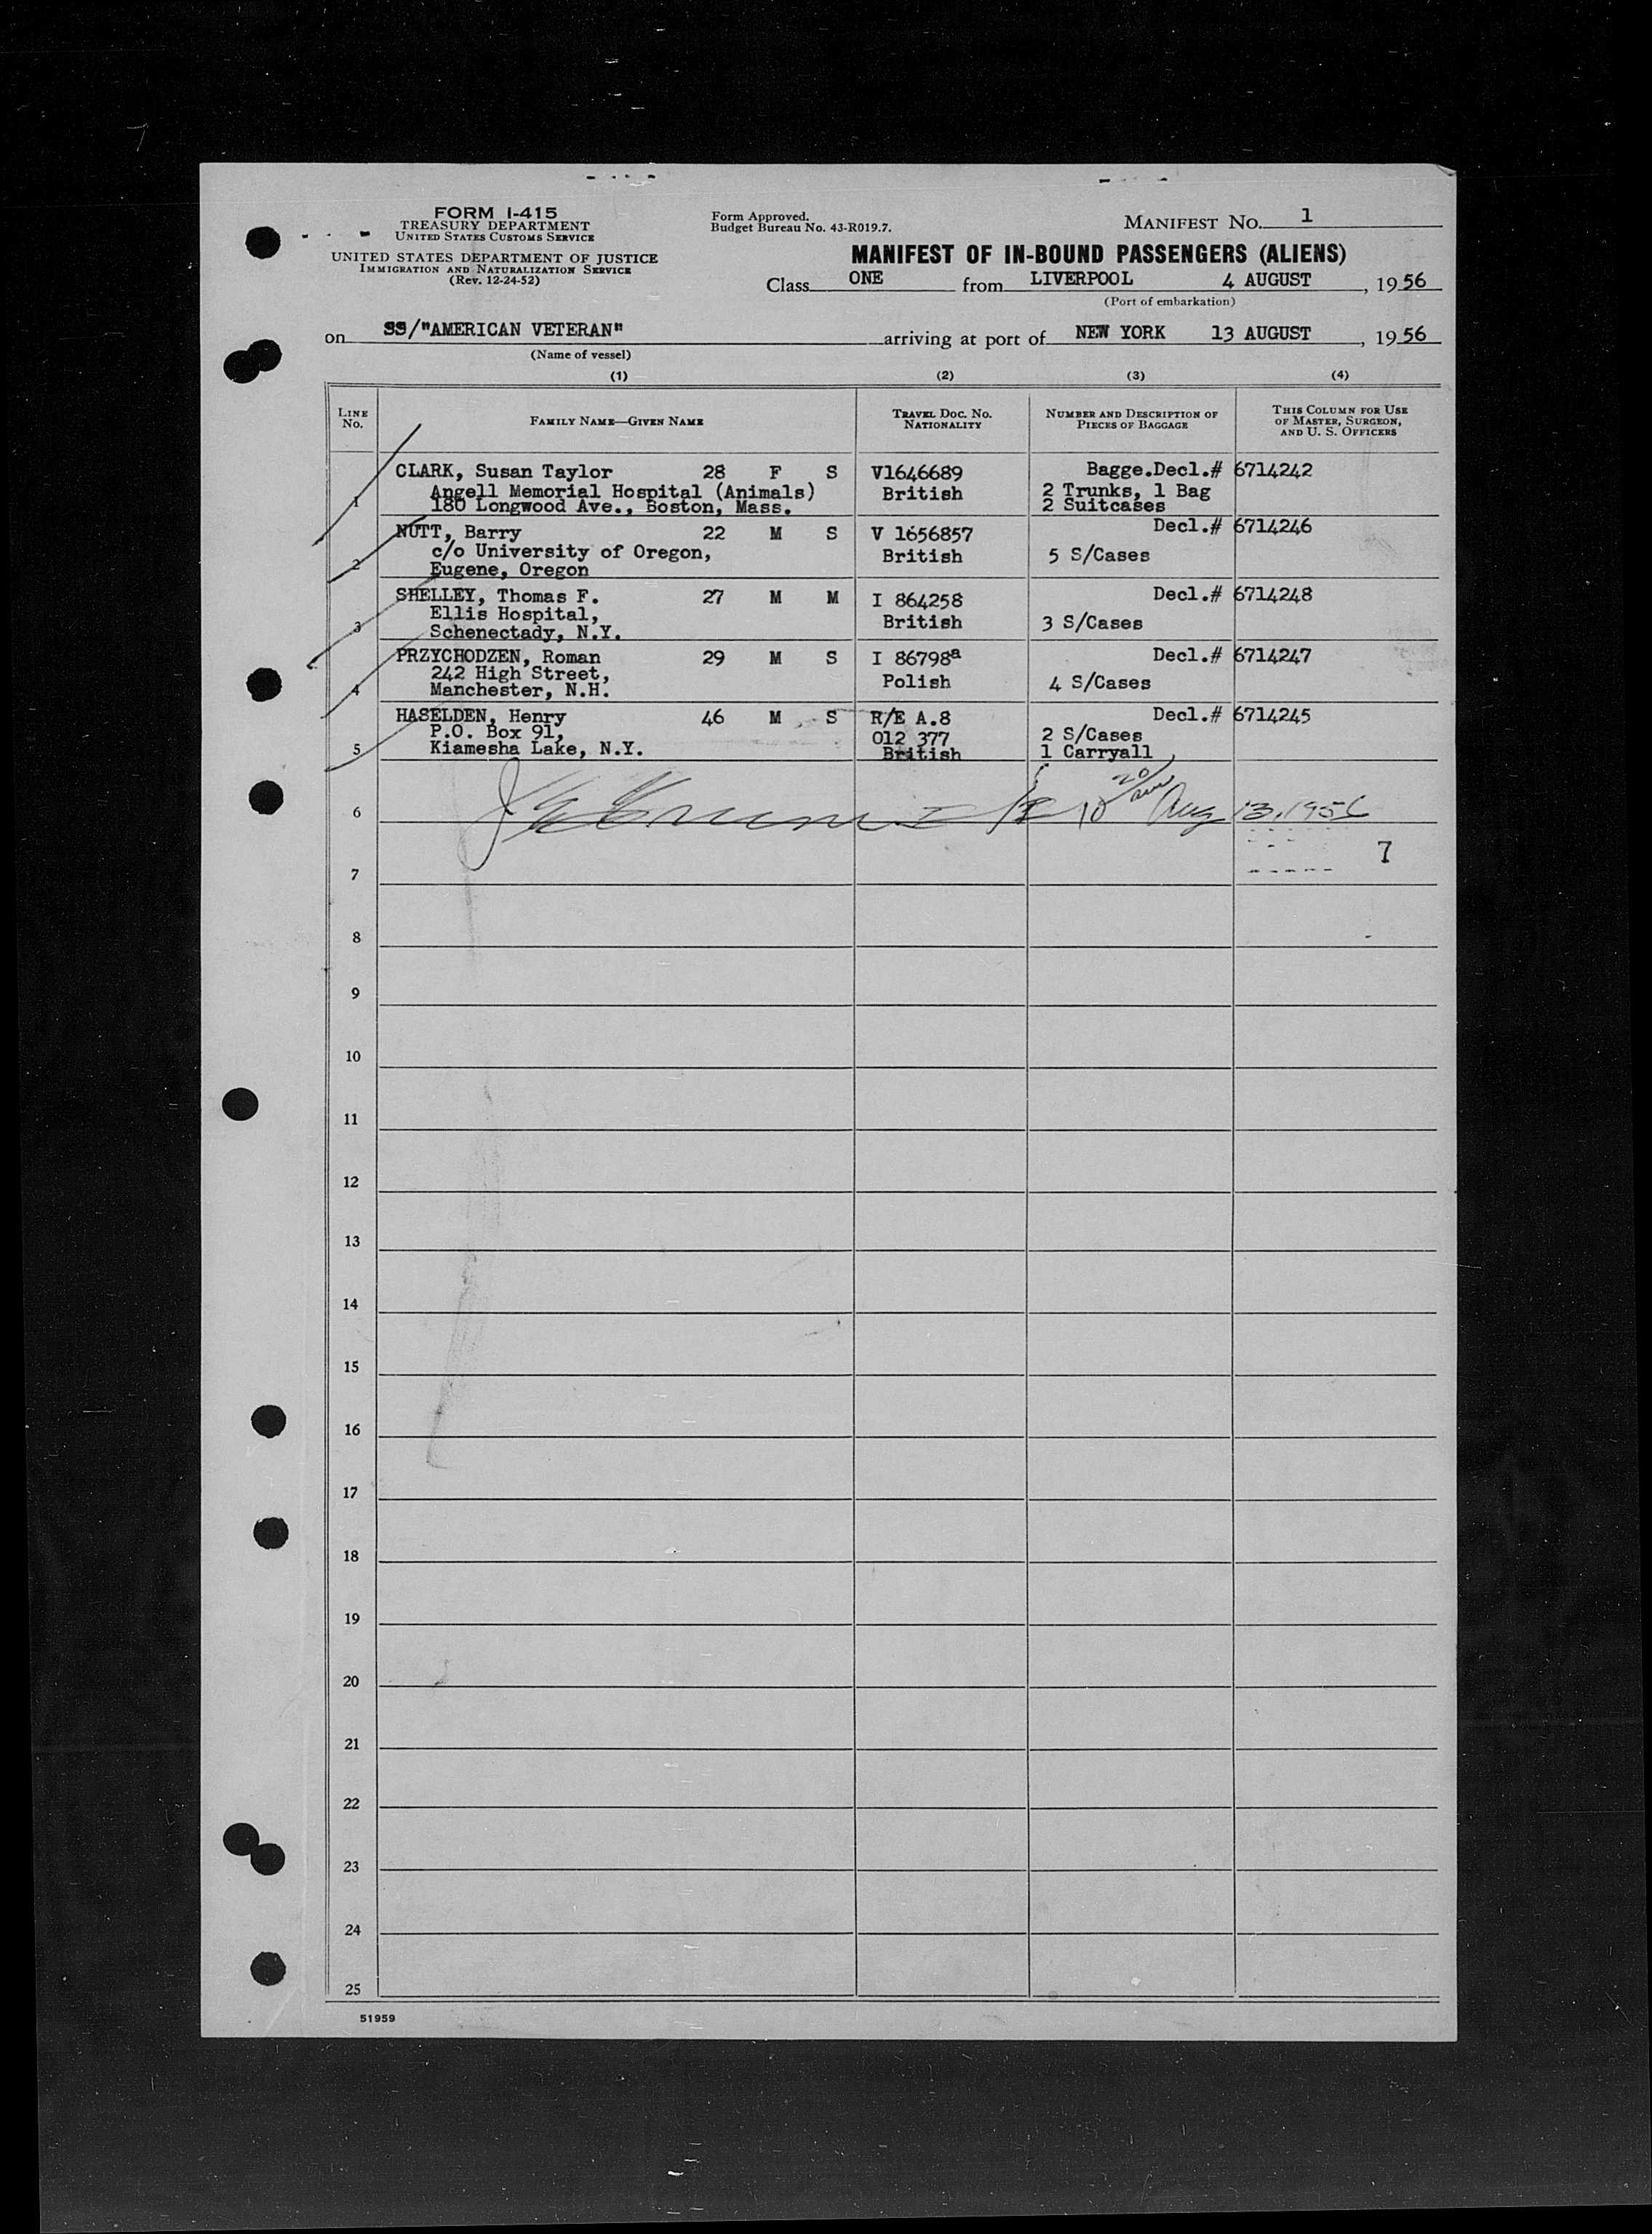 FORM I-415
TREASURY DEPARTMENT
UNITED STATES CUSTOMS SERVICE
UNITED STATES DEPARTMENT OF JUSTICE
IMMIGRATION AND NATURALIZATION SERVICE
(Rev. 12-24-52)
Form Approved.
Budget Bureau No. 43-R019.7.
MANIFEST NO. 1
MANIFEST OF IN-BOUND PASSENGERS (ALIENS)
Class ONE from LIVERPOOL 4 AUGUST, 1956
(Port of embarkation)
on SS/"AMERICAN VETERAN" arriving at port of NEW YORK 13 AUGUST, 1956
(Name of vessel)
(1) (2) (3) (4)
LINE NO. FAMILY NAME—GIVEN NAME TRAVEL DOC. NO. NATIONALITY NUMBER AND DESCRIPTION OF PIECES OF BAGGAGE THIS COLUMN FOR USE OF MASTER, SURGEON, AND U. S. OFFICERS
CLARK, Susan Taylor 28 F S V1646689 Bagge.Decl.# 6714242
Angell Memorial Hospital (Animals) British 2 Trunks, 1 Bag
1 180 Longwood Ave., Boston, Mass. 2 Suitcases
NUTT, Barry 22 M S V 1656857 Decl.# 6714246
c/o University of Oregon, British 5 S/Cases
2 Eugene, Oregon
SHELLEY, Thomas F. 27 M M I 864258 Decl.# 6714248
Ellis Hospital, British 3 S/Cases
3 Schenectady, N.Y.
PRZYCHODZEN, Roman 29 M S I 86798a Decl.# 6714247
242 High Street, Polish 4 S/Cases
4 Manchester, N.H.
HASELDEN, Henry 46 M S R/E A.8 Decl.# 6714245
P.O. Box 91, 012 377 2 S/Cases
5 Kiamesha Lake, N.Y. British 1 Carryall
6 10 20/am Aug 13, 1956
7 7
8
9
10
11
12
13
14
15
16
17
18
19
20
21
22
23
24
25
51959